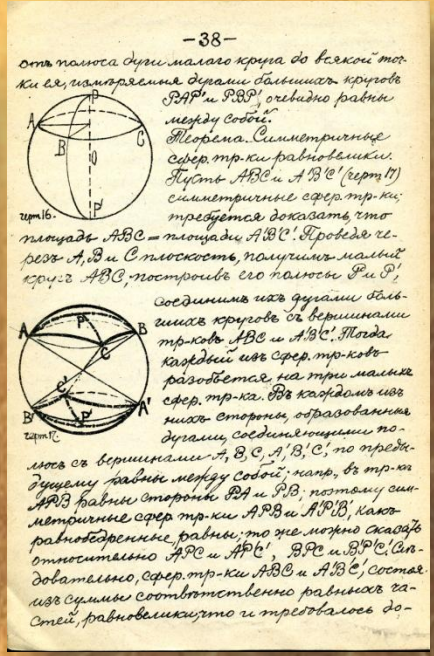 —38—
отъ полюса дуги малаго круга до всякой точ-
ки ея, измѣряемыя дугами большихъ круговъ
PAP' и PBP', очевидно равны
между собой.
Теорема. Симметричные
сфер. тр-ки равновелики.
Пусть ABC и A'B'C' (черт 17)
симметричные сфер. тр-ки;
требуется доказать, что
площадь ABC = площади A'B'C'. Проведя че-
резъ A, B и C плоскость, получимъ малый
кругъ ABC; построивъ его полюсы P и P',
соединимъ ихъ дугами боль-
шихъ круговъ съ вершинами
тр-ковъ ABC и A'B'C'. Тогда
каждый изъ сфер. тр-ковъ
разобьется на три малыхъ
сфер. тр-ка. Въ каждомъ изъ
нихъ стороны, образованныя
дугами, соединяющими по-
люсъ съ вершинами A, B, C, A', B', C', по преды-
дущему равны между собой; напр., въ тр-кѣ
APB равны стороны PA и PB; поэтому сим-
метричные сфер. тр-ки APB и A'P'B', какъ
равнобедренные, равны; то же можно сказать
относительно APC и A'P'C', BPC и B'P'C'. Слѣ-
довательно, сфер. тр-ки ABC и A'B'C', состоя
изъ суммы соотвѣтственно равныхъ ча-
стей, равновелики, что и требовалось до-
P
A
C
B
O
P'
черт 16.
A
P
B
C
C'
B'
P'
A'
черт 17.